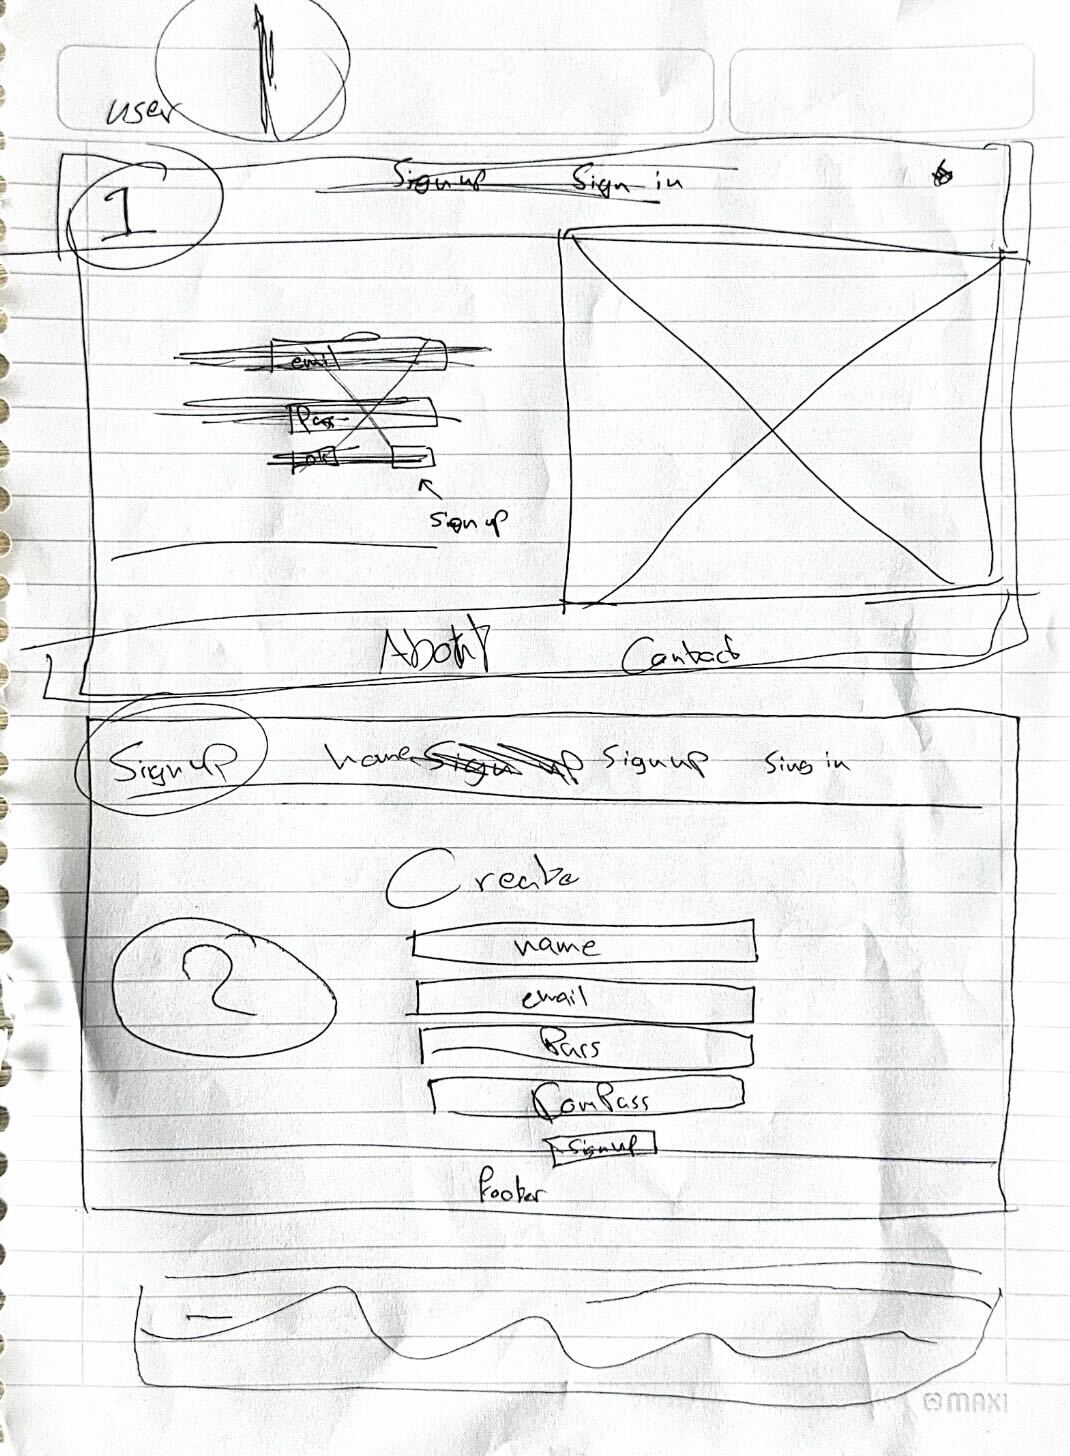 user
1
Sign up Sign in
email
Pass
ok
sign up
About
Contact
Sign up home Sign up Sign up Sing in
Create
name
2
email
Pars
ComPass
Signup
footer
MAXI